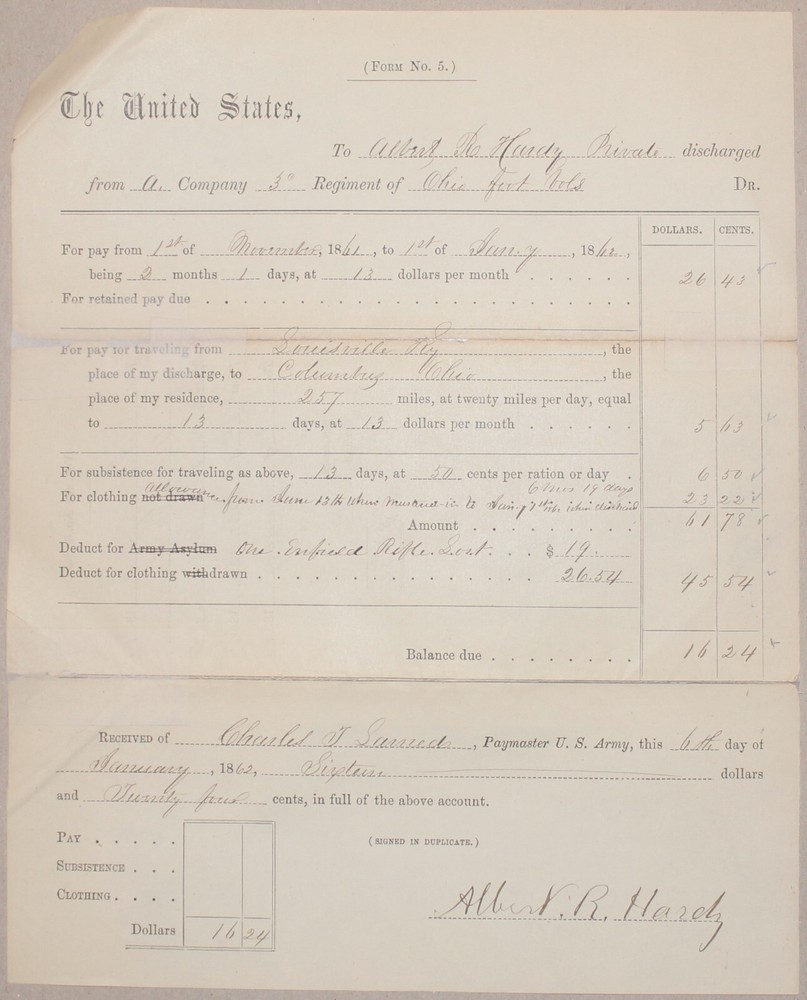 (FORM NO. 5.)
The United States,
To Albert R Hardy Private discharged
from A. Company 3d Regiment of Ohio Foot Vols DR.
DOLLARS. CENTS.
For pay from 1st of November, 1861, to 1st of Jan.y, 1862,
being 2 months 1 days, at 13 dollars per month . . . . . . 26 43
For retained pay due . . . . . . . . . . . . . . . . . . . . . . .
For pay for traveling from Louisville Ky, the
place of my discharge, to Columbus Ohio, the
place of my residence, 257 miles, at twenty miles per day, equal
to 13 days, at 13 dollars per month . . . . . . 5 63
For subsistence for traveling as above, 13 days, at 50 cents per ration or day . 6 50
6 Mos 19 days
allowance
For clothing not drawn from June 13th when mustered in to Jany 1st when discharged 23 22
Amount . . . . . . . . . 61 78
Deduct for Army Asylum One Enfield Rifle Lost. . . $ 19.
Deduct for clothing withdrawn . . . . . . . . . . . . . . . 26.54 45 54
Balance due . . . . . . . . 16 24
RECEIVED of Charles T Larned, Paymaster U. S. Army, this 6th day of
January, 1862, Sixteen dollars
and Twenty four cents, in full of the above account.
PAY . . . . .
(SIGNED IN DUPLICATE.)
SUBSISTENCE . . .
CLOTHING . . . .
Albert. R. Hardy
Dollars 16 24